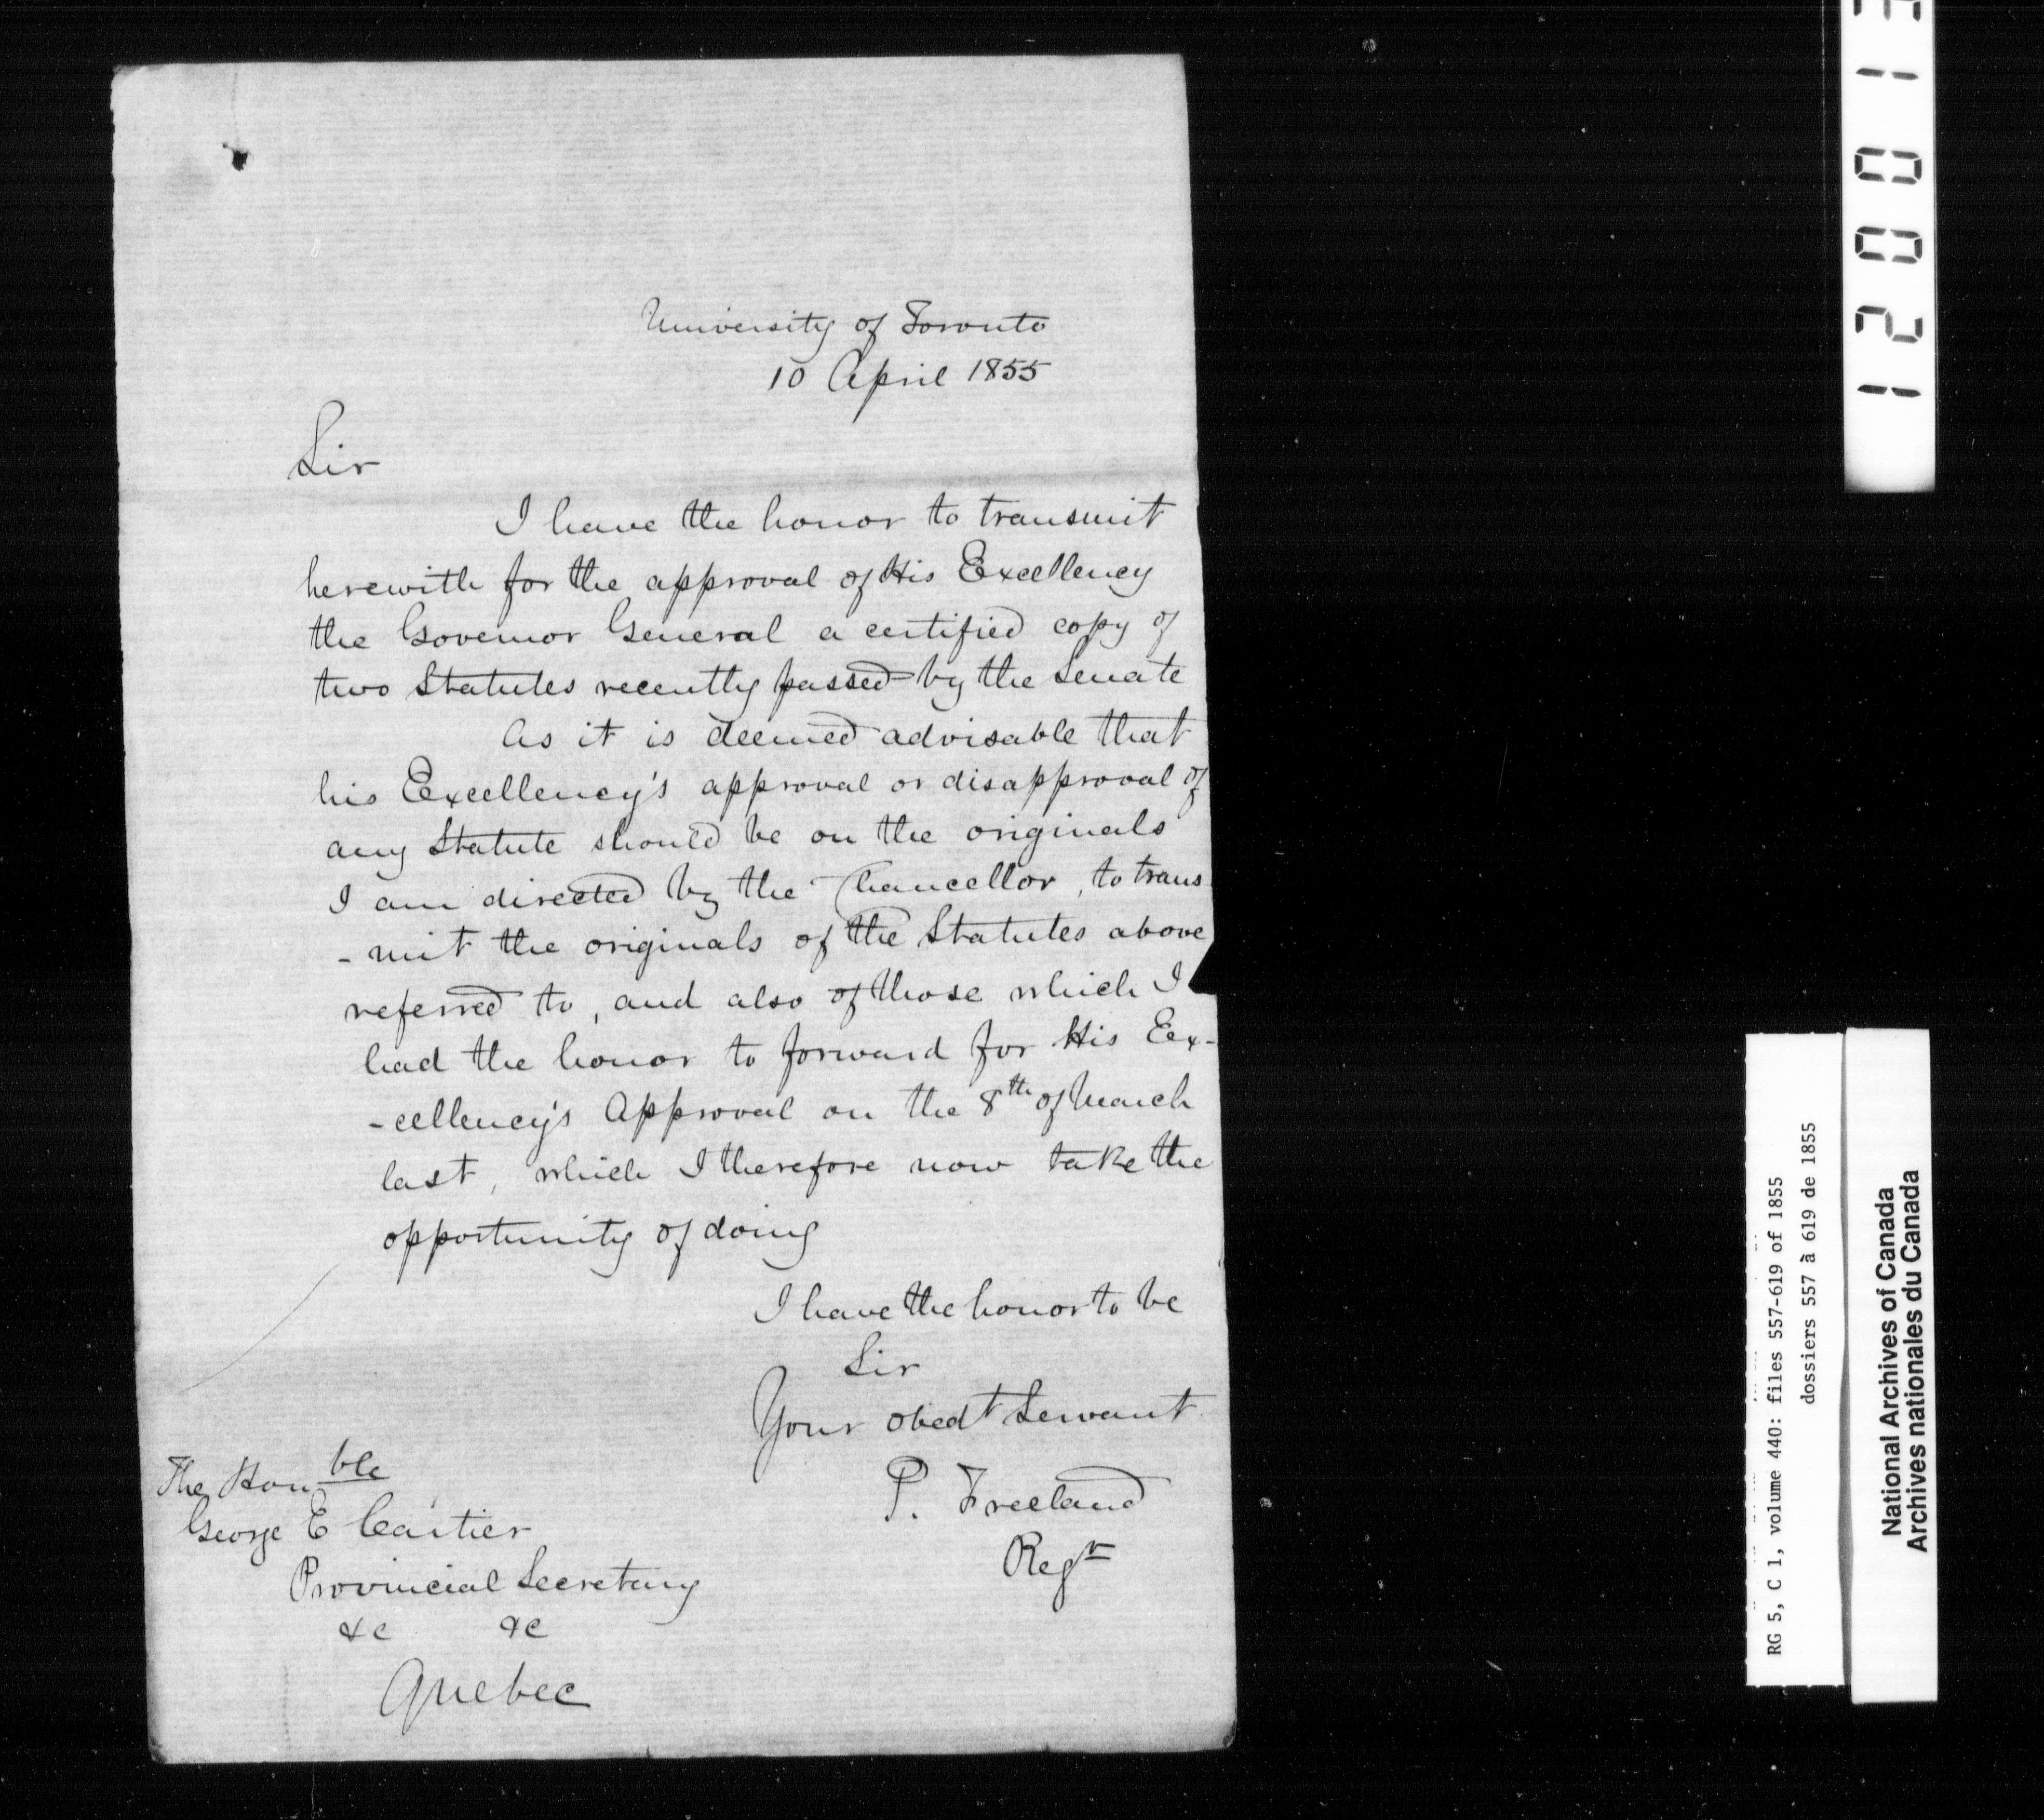 University of Toronto
10 April 1855
Sir
I have the honor to transmit
herewith for the approval of His Excellency
the Governor General a certified copy of
two Statutes recently passed by the Senate
As it is deemed advisable that
his Excellency's approval or disapproval of
any Statute should be on the originals
I am directed by the Chancellor, to trans
-mit the originals of the Statutes above
referred to, and also of those which I
had the honor to forward for His Ex-
-cellency's Approval on the 8th of March
last, which I therefore now take the
opportunity of doing
I have the honor to be
Sir
Your obedt Servant
P. Freeland
Regr
The Honble
George E Cartier
Provincial Secretary
&c &c
Quebec
RG 5, C 1, volume 440: files 557-619 of 1855
dossiers 557 à 619 de 1855
National Archives of Canada
Archives nationales du Canada